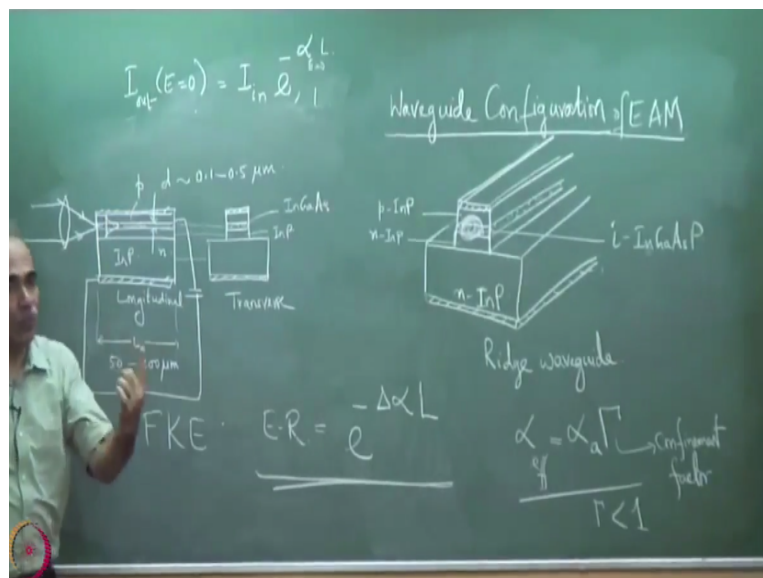 I_out (E=0) = I_in e^{-α_{E=0} L}
Waveguide Configuration of EAM
p d ~ 0.1-0.5 μm.
InGaAs
InP
InP n
Longitudinal
Transverse
L
50 - 200 μm
p-InP
n-InP
i-InGaAsP
n-InP
Ridge waveguide
FKE
E.R = e^{-ΔαL}
α_eff = α_a Γ → Confinement factor
Γ < 1